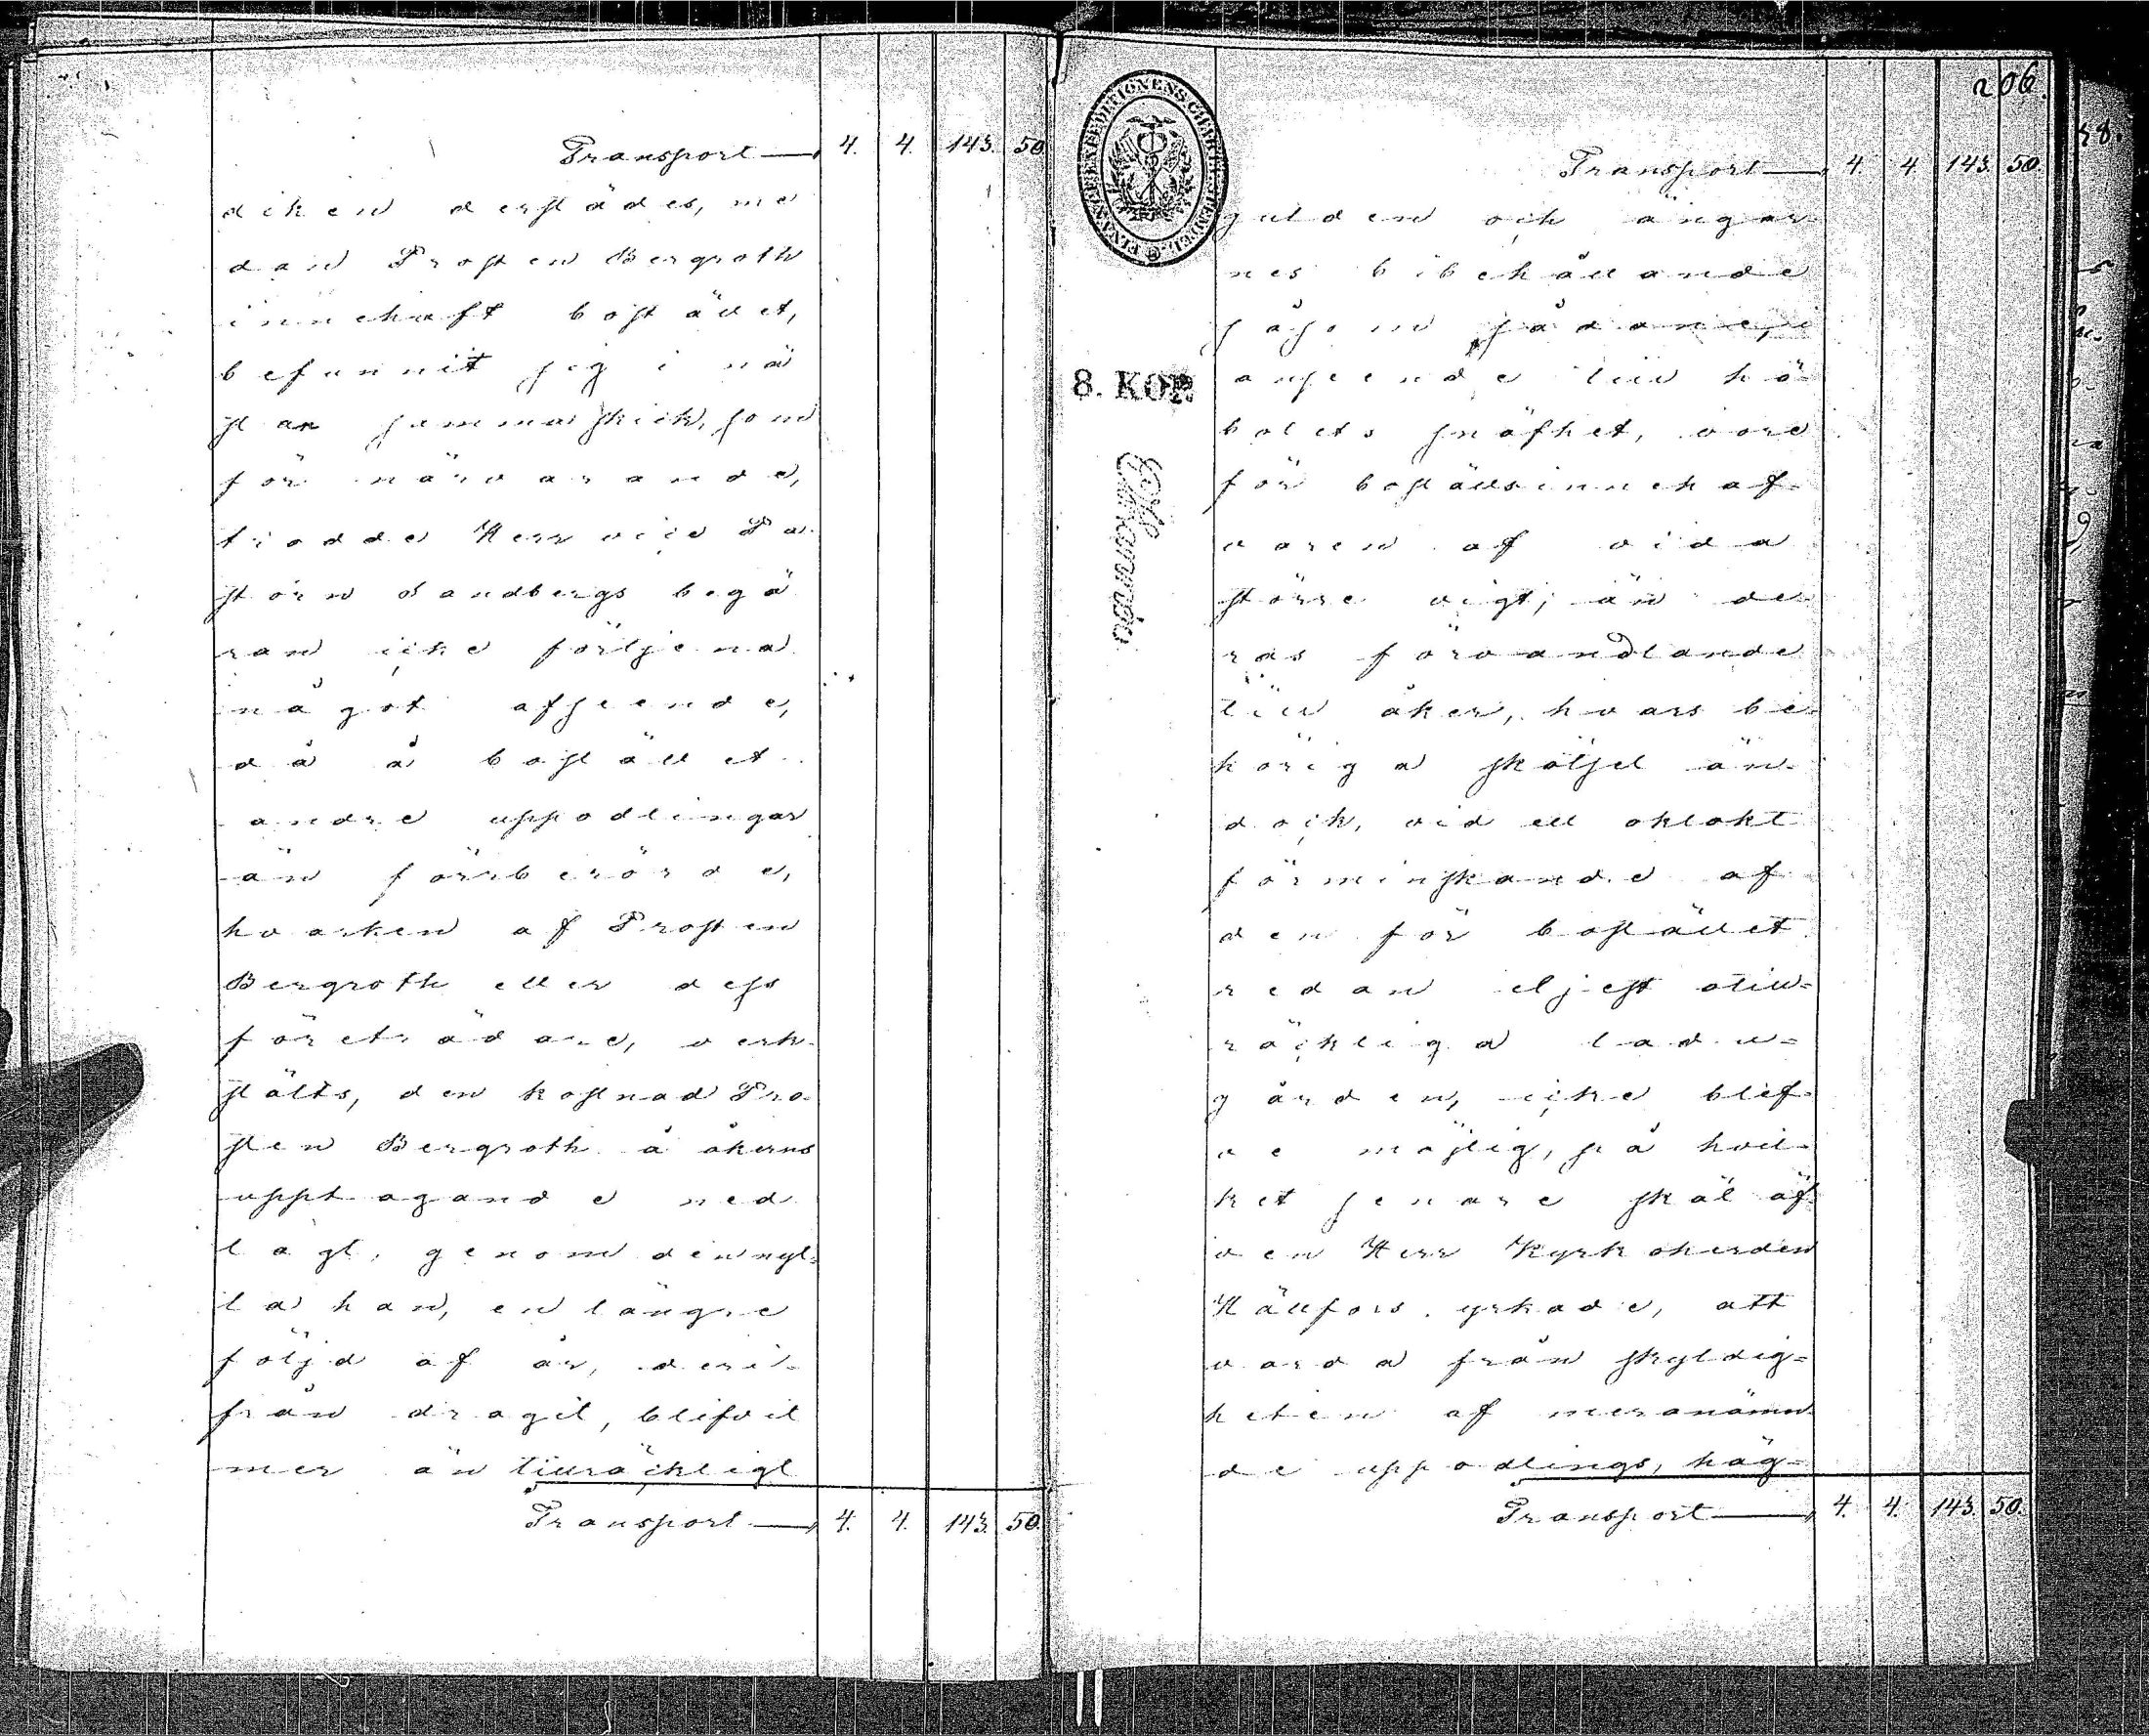 Transport — 4. 4. 143. 50
diken derstädes, me
dan Prosten Bergroth
innehaft bostället,
befunnit sig i nä
stan samma skick, som
för närvarande,
trodde Herr vice Pa
storn Sandbergs begä
ran icke förtjena
något afseende,
då å bostället
andre uppodlingar
än förrberörde,
hvarken af Prosten
Bergroth eller dess
företrädare, verk-
stälts, den kostnad Pro-
sten Bergroth å åkerns
upptagande ned
lagt, genom den nyt-
ta han, en längre
följd af år, deri-
från dragit, blifvit
mer än tillräckligt
Transport — 4. 4. 143. 50.
206.
Transport — 4. 4. 143. 50.
gulden och ängar
nes bibehållande
såsom sådane,
anseende till hö-
bolets snäfhet, vore
för boställsinnehaf-
varen af vida
större vigt, än de-
ras förvandlande
till åker, hvars be-
höriga skötsel än-
dock, vid ett oklokt
förminskande af
den för bostället
redan eljest otill-
räckliga ladu-
gården, icke blef-
ve möjlig, på hvil-
ket senare skäl äf
ven Herr Kyrkoherden
Hällfors yrkade, att
varda från skyldig-
heten af meranämn-
de uppodlings, häg-
Transport — 4. 4. 143. 50.
8. KOP.